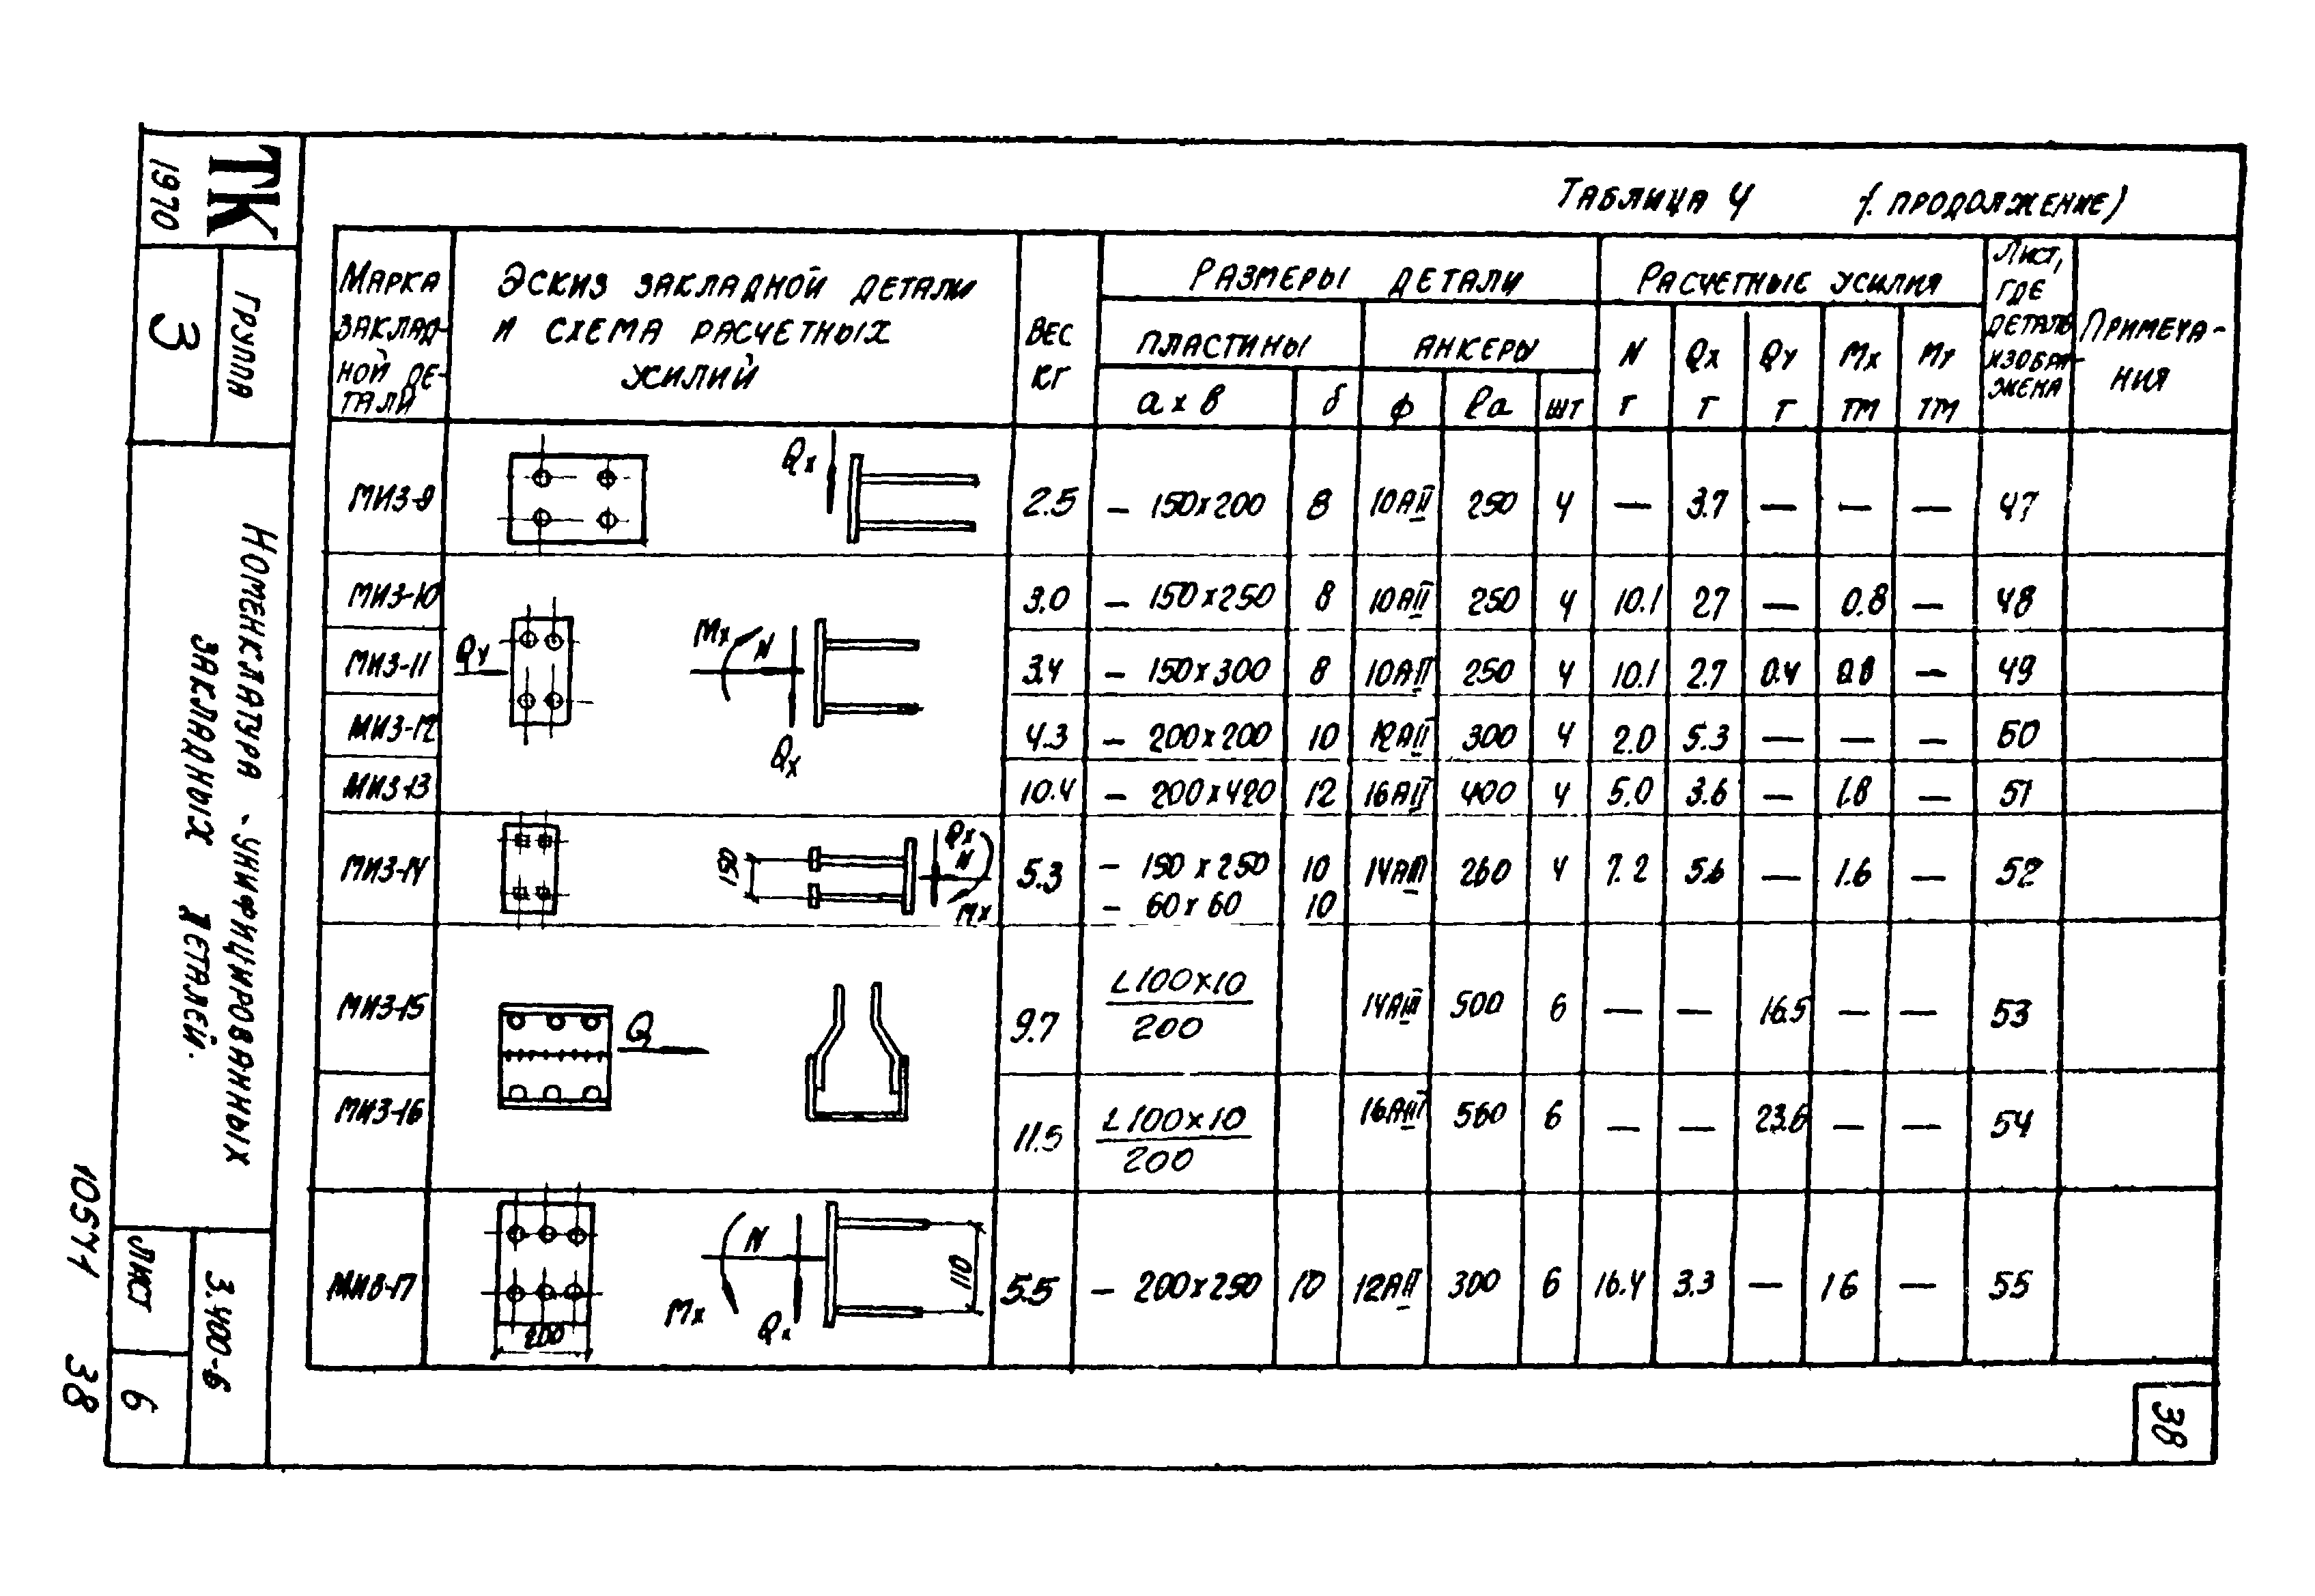 Таблица 4 (продолжение)
Марка закладной детали
Эскиз закладной детали и схема расчетных усилий
Вес кг
Размеры детали
Расчетные усилия
Лист, где деталь изображена
Примечания
пластины
анкеры
N т
Qx т
Qy т
Mx тм
My тм
а х в
δ
ф
ℓа
шт
МИ3-9 Qx 2.5 – 150х200 8 10АII 250 4 — 3.7 — — — 47
МИ3-10 3.0 – 150х250 8 10АII 250 4 10.1 2.7 — 0.8 — 48
Qy Mx N Qx
МИ3-11 3.4 – 150х300 8 10АII 250 4 10.1 2.7 0.4 0.8 — 49
МИ3-12 4.3 – 200х200 10 12АII 300 4 2.0 5.3 — — — 50
МИ3-13 10.4 – 200х420 12 16АII 400 4 5.0 3.6 — 1.8 — 51
МИ3-14 150 Qx N Mx 5.3 – 150х250 10 14АIII 260 4 7.2 5.6 — 1.6 — 52
– 60х60 10
МИ3-15 Q 9.7 L100х10 / 200 14АIII 500 6 — — 16.5 — — 53
МИ3-16 11.5 L100х10 / 200 16АIII 560 6 — — 23.6 — — 54
МИ3-17 200 N Mx Qx 110 5.5 – 200х250 10 12АII 300 6 16.4 3.3 — 1.6 — 55
38
ТК
1970
Группа
3
Номенклатура унифицированных
закладных деталей.
3.400-6
Лист
6
10571 38